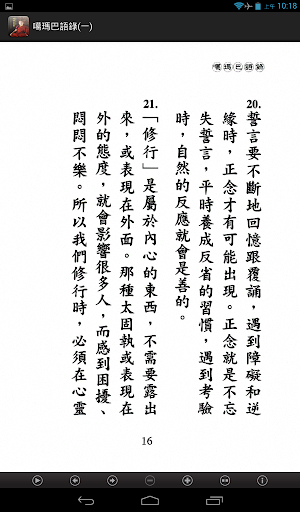 上午 10:18
噶瑪巴語錄(一)
噶瑪巴語錄
20.誓言要不斷地回憶跟覆誦，遇到障礙和逆
緣時，正念才有可能出現。正念就是不忘
失誓言，平時養成反省的習慣，遇到考驗
時，自然的反應就會是善的。
21.「修行」是屬於內心的東西，不需要露出
來，或表現在外面。那種太固執或表現在
外的態度，就會影響很多人，而感到困擾、
悶悶不樂。所以我們修行時，必須在心靈
16